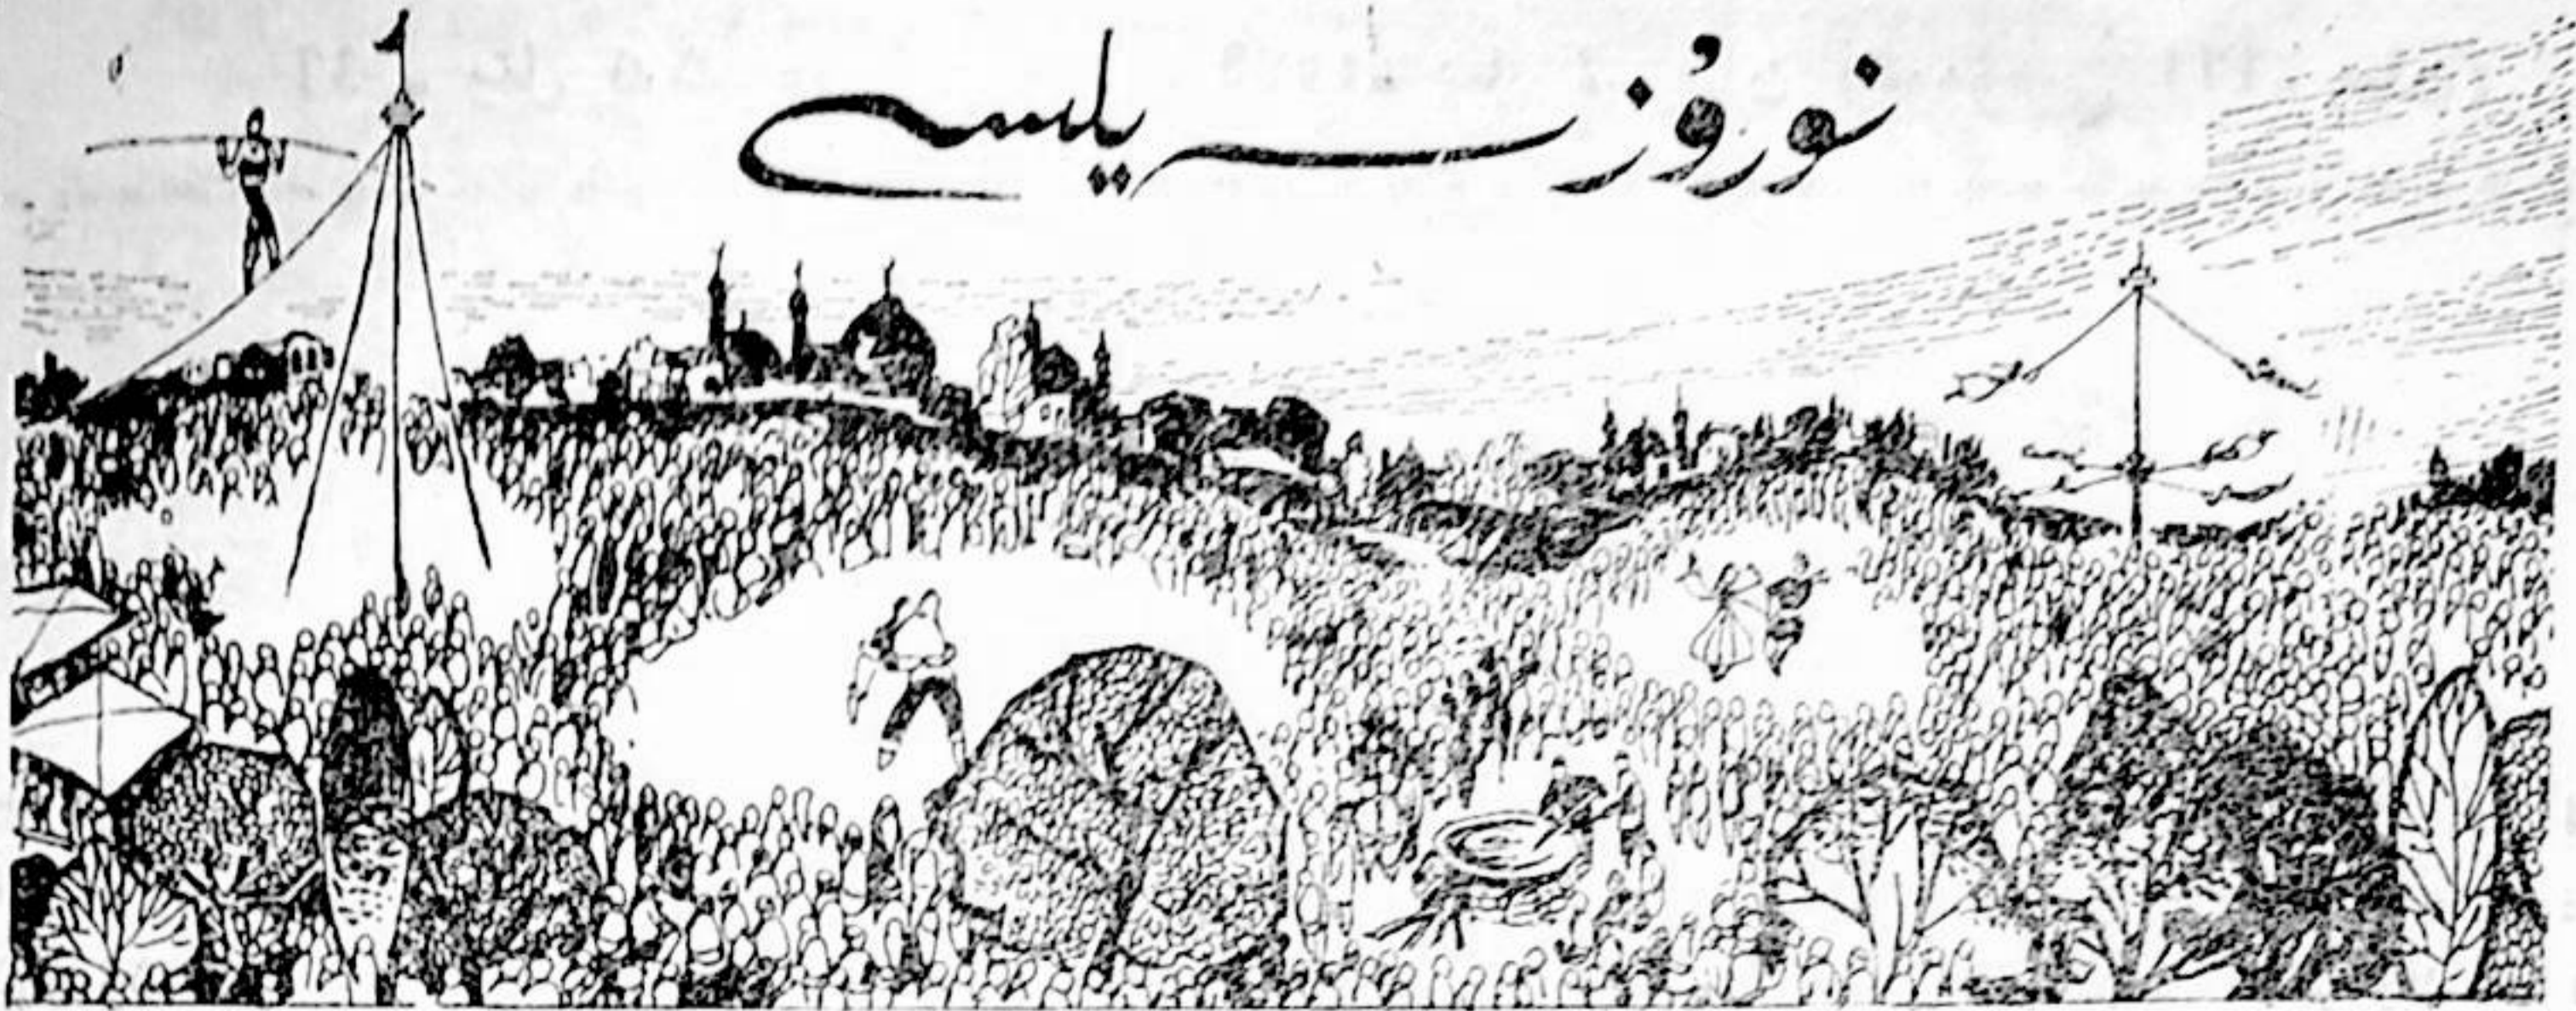 نورۇز سەيلىسى